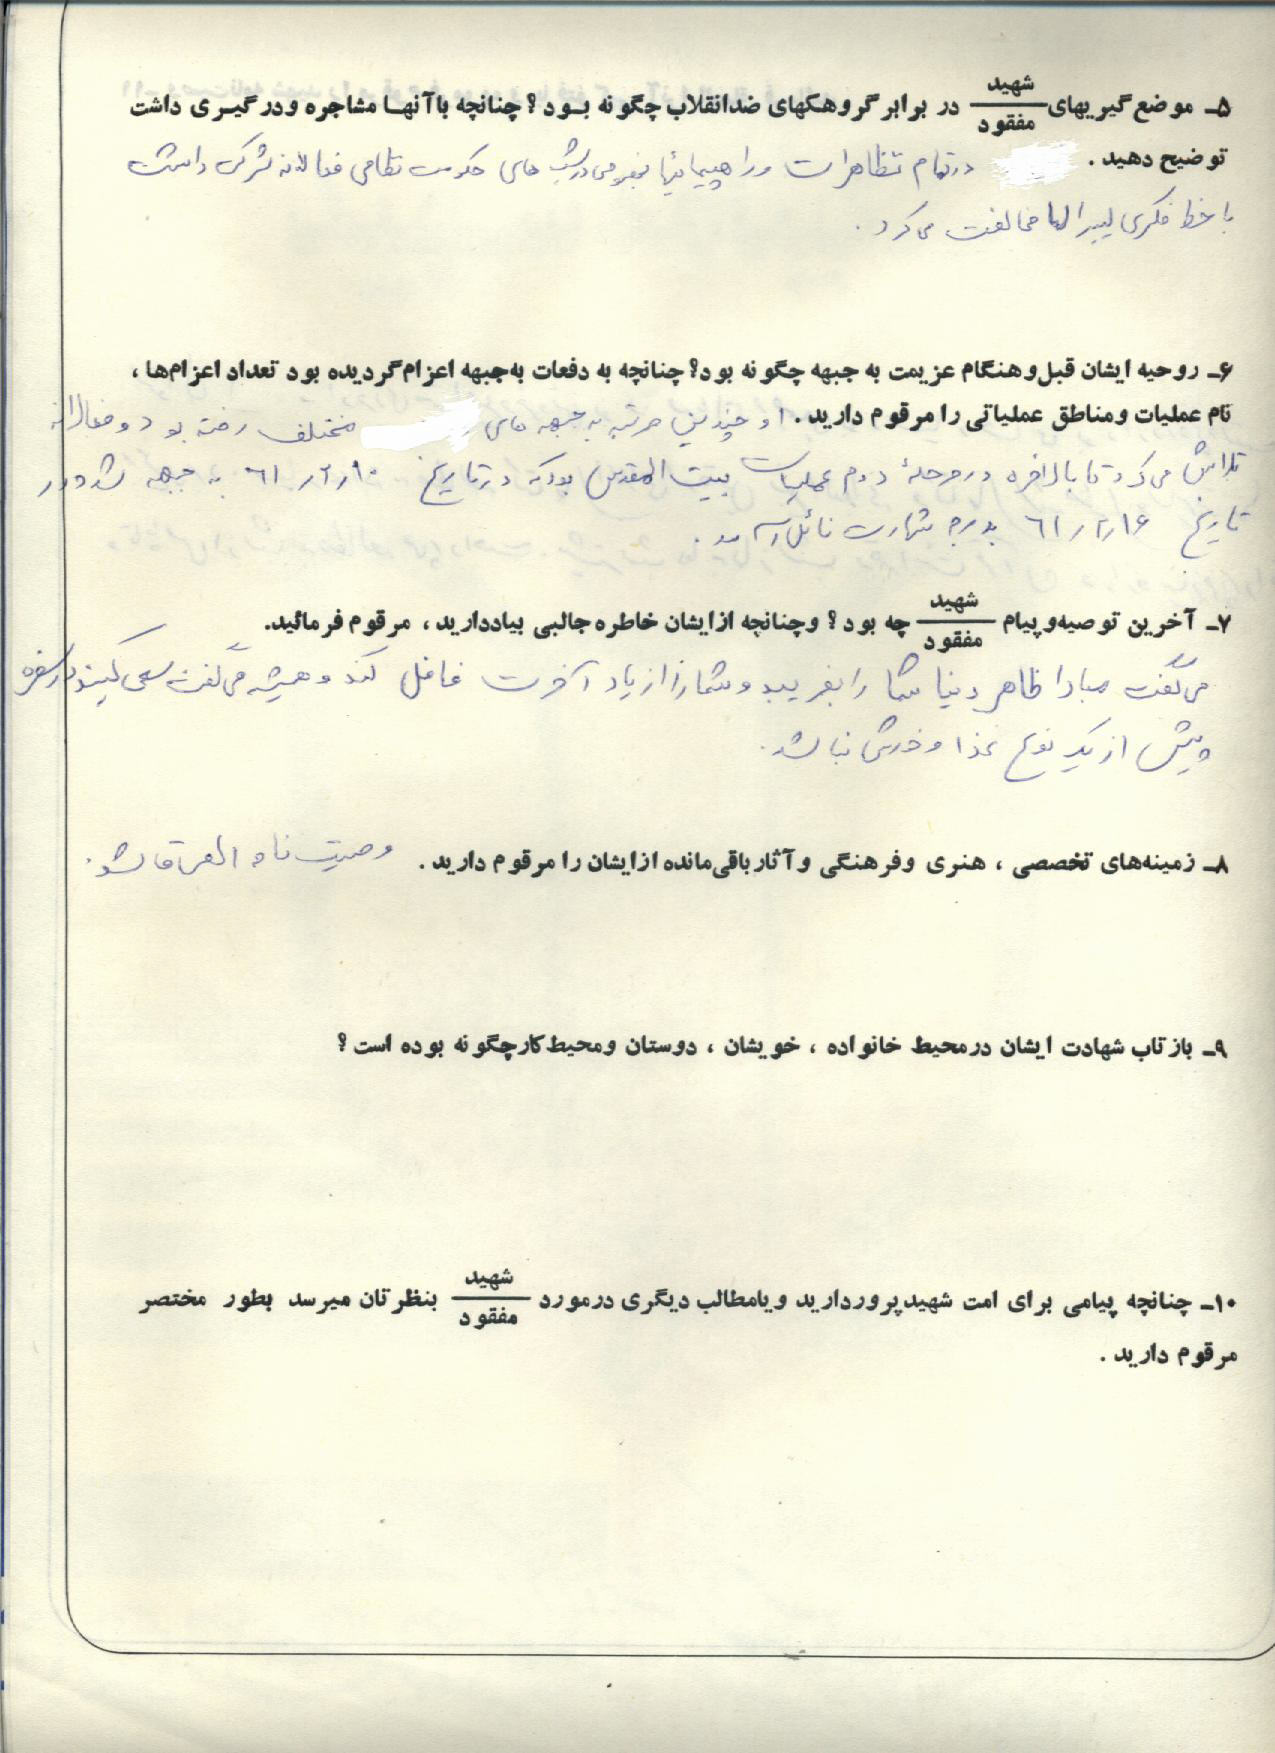 ۵ـ موضع گیریهای شهید/مفقود در برابر گروهکهای ضدانقلاب چگونه بود؟ چنانچه باآنها مشاجره ودرگیری داشت
توضیح دهید. در تمام تظاهرات و راهپیمائیها بخصوص در شب های حکومت نظامی فعالانه شرکت داشت
با خط فکری لیبرالها مخالفت می‌کرد.
۶ـ روحیه ایشان قبل‌وهنگام عزیمت به جبهه چگونه بود؟ چنانچه به دفعات به‌جبهه اعزام‌گردیده بود تعداد اعزام‌ها،
نام عملیات ومناطق عملیاتی را مرقوم دارید. او چندین مرتبه به جبهه های مختلف رفته بود و فعالانه
تلاش می‌کرد تا بالاخره در مرحلهٔ دوم عملیات بیت المقدس بود که در تاریخ ۶۱/۲/۱۰ به جبهه شد و در
تاریخ ۶۱/۲/۱۶ بدرجه شهادت نائل آمد.
۷ـ آخرین توصیه‌وپیام شهید/مفقود چه بود؟ وچنانچه ازایشان خاطره جالبی بیاددارید، مرقوم فرمائید.
می‌گفت مبادا ظاهر دنیا شما را بفریبد و شما را از یاد آخرت غافل کند و همیشه می‌گفت سعی کنید در سفره
بیش از یک نوع غذا و خورش نباشد.
۸ـ زمینه‌های تخصصی، هنری وفرهنگی وآثارباقی‌مانده ازایشان را مرقوم دارید. وصیت نامه الصاق شد.
۹ـ بازتاب شهادت ایشان درمحیط خانواده، خویشان، دوستان ومحیط‌کارچگونه بوده است؟
۱۰ـ چنانچه پیامی برای امت شهیدپروردارید ویامطالب دیگری درمورد شهید/مفقود بنظرتان میرسد بطور مختصر
مرقوم دارید.